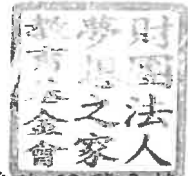 財團法人
夢想之家
教育基金會